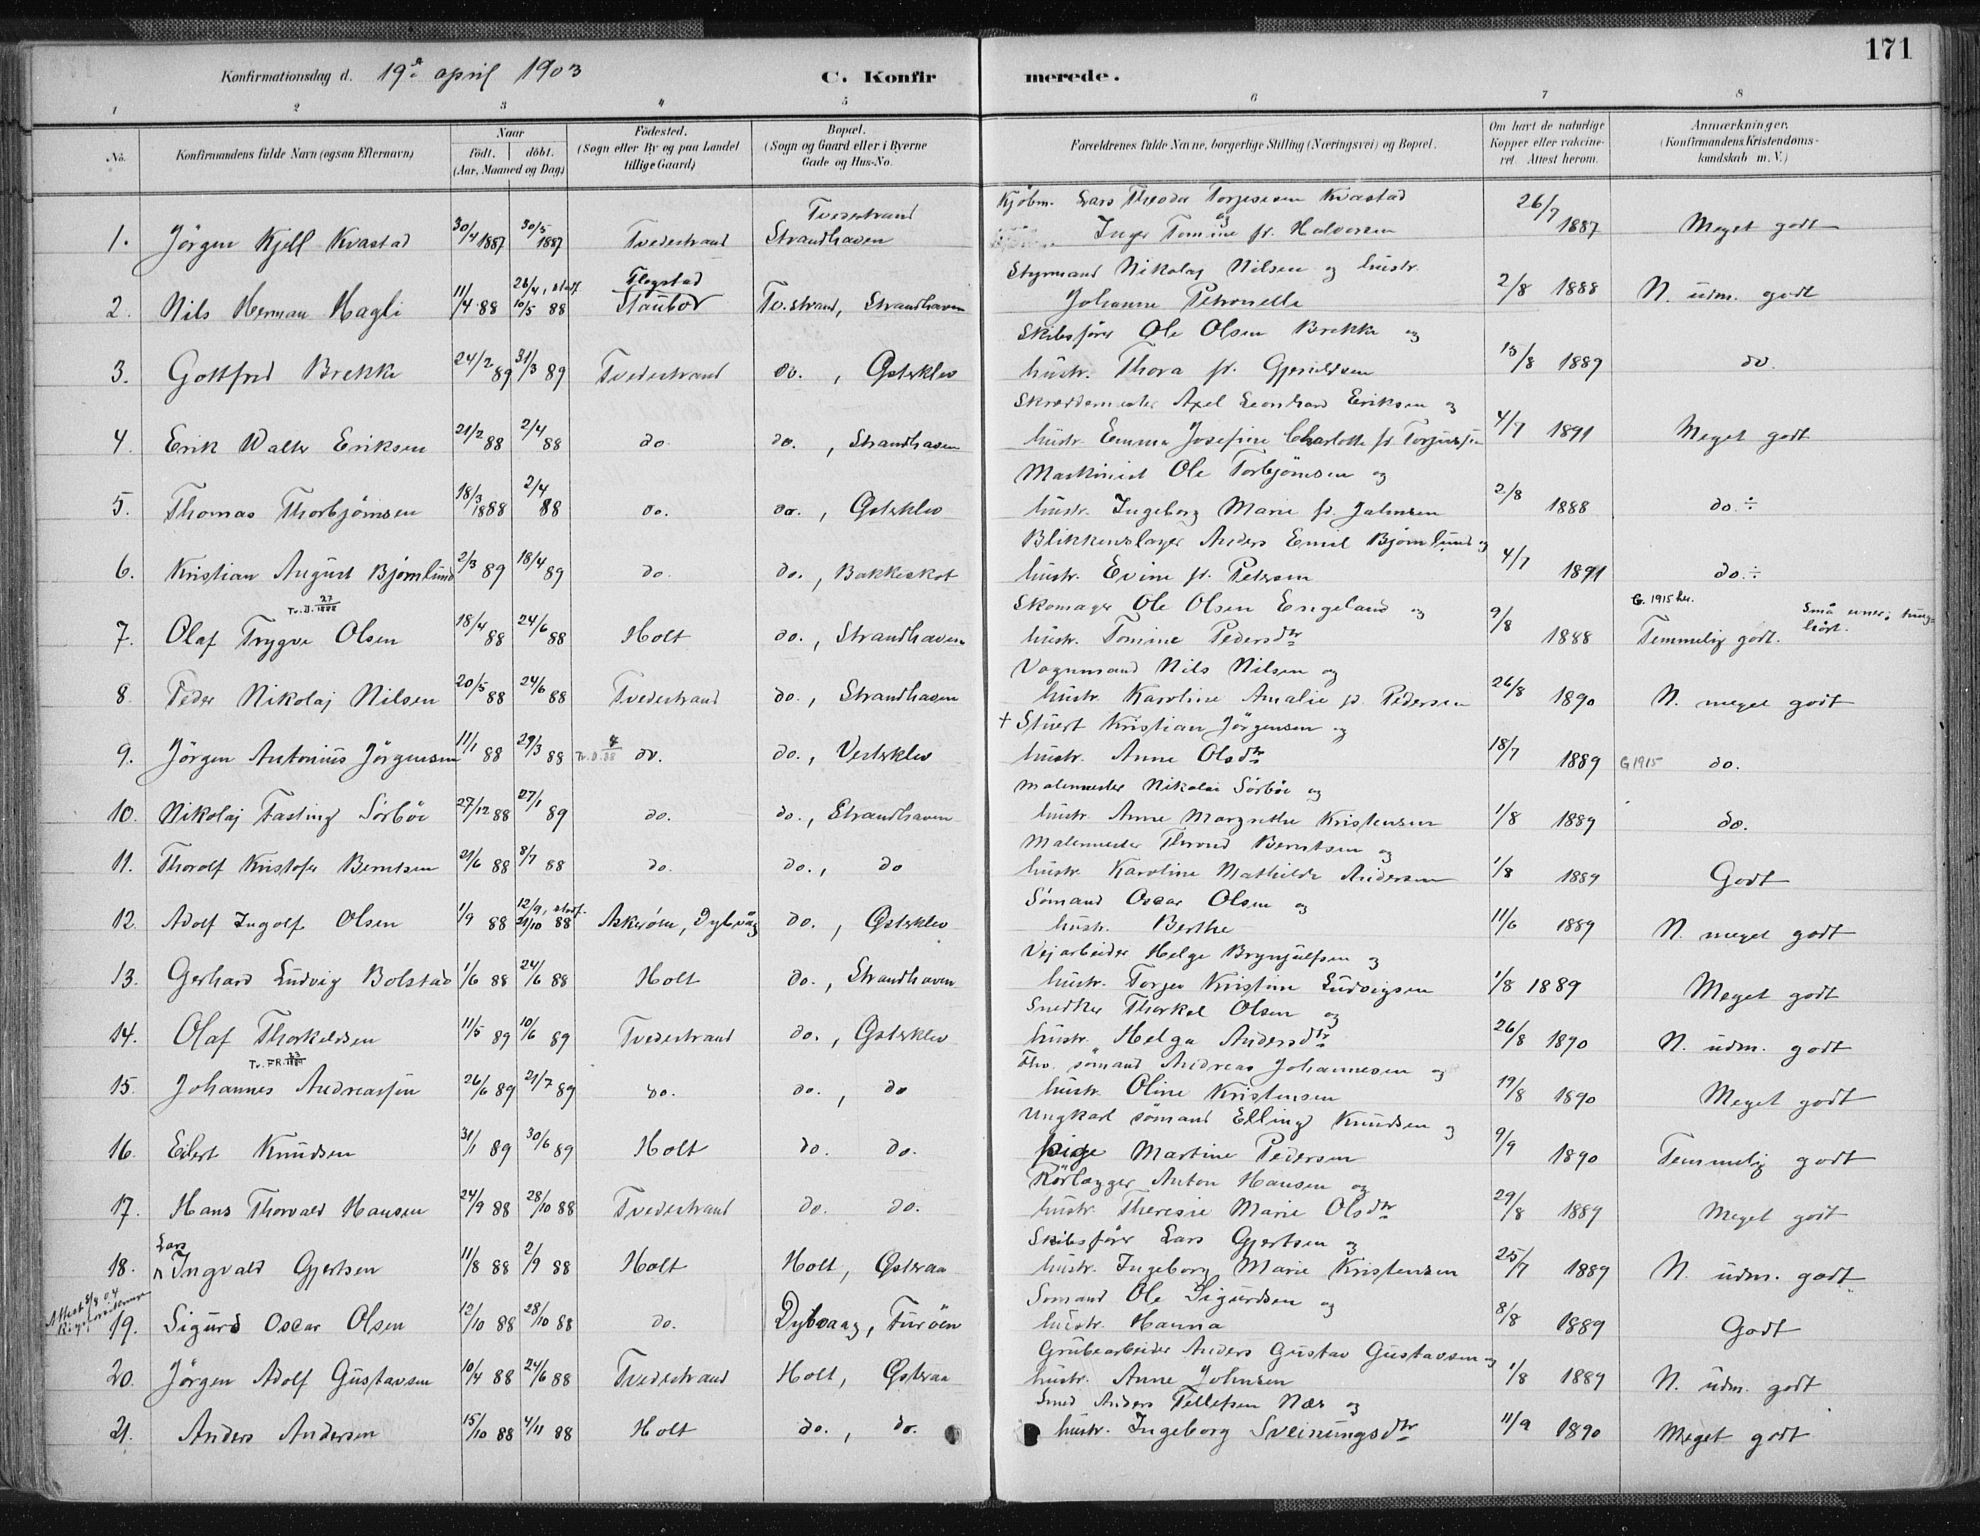 171
Konfirmationsdag d. 19de april 1903 C. Konfir merede.
1 2 3 4 5 6 7 8
No. Konfirmandens fulde Navn (ogsaa Efternavn) Naar født. døbt. (Aar, Maaned og Dag) Fødested. (Sogn eller By og paa Landet tillige Gaard) Bopæl. (Sogn og Gaard eller i Byerne Gade og Hus-No. Forældrenes fulde Navne, borgerlige Stilling (Næringsvei) og Bopæl. Om havt de naturlige Kopper eller vaccineret. Attest herom. Anmærkninger. (Konfirmandens Kristendomskundskab m. V.)
Tvedestrand Kjøbm. Lars Theodor Torjesen Kvastad og
1. Jörgen Kjell Kvastad 30/4 1887 30/5 1887 Tvedestrand Strandhaven Inger Tomine f. Halvorsen 26/7 1887 Meget godt
Flogstad Styrmand Nikolaj Nilsen og hustr.
2. Nils Herman Hagli 11/4 88 26/4, stadf. 10/5 88 Staubø Tv.strand, Strandhaven Johanne Petronelle 2/8 1888 N. udm. godt
Skibsfører Ole Olsen Brekke og
3. Gottfred Brekke 24/2 89 31/3 89 Tvedestrand do. , Østerklev hustr. Thora f. Gjeruldsen 15/8 1889 do.
Skræddermester Axel Leonhard Eriksen og
4. Erik Walter Eriksen 21/2 88 2/4 88 do. do. , Strandhaven hustr. Emma Josefine Charlotte f. Torjussen 4/7 1891 Meget godt
Maskinist Ole Torbjörnsen og
5. Thomas Thorbjörnsen 18/3 1888 2/4 88 do. do. , Østerklev hustr. Ingeborg Marie f. Jahnsen 2/8 1888 do. ÷
Blikkenslager Anders Emil Björnlund og
6. Kristian August Björnlund 2/3 89 18/4 89 do. do. , Bakkeskot hustr. Evine f. Petersen 4/7 1891 do. ÷
Tv.D. 27/1888 Skomager Ole Olsen Engeland og G. 1915 her.
7. Olaf Trygve Olsen 18/4 88 24/6 88 Holt do. , Strandhaven hustr. Tomine Pedersdtr 9/8 1888 Temmelig godt.
Vognmand Nils Nilsen og
8. Peder Nikolaj Nilsen 20/5 88 24/6 88 Tvedestrand do. , Strandhaven hustr. Karoline Amalie f. Pedersen 26/8 1890 N. meget godt
+ Stuert Kristian Jörgensen og
9. Jörgen Antonius Jörgensen 11/1 88 29/3 88 Tv.D. 4/88 do. do. , Vesterklev hustr. Anne Olsdtr 18/7 1889 G 1915 do.
Malermester Nikolai Sörbøe og
10. Nikolaj Fasting Sörböe 27/12 88 27/1 89 do. do. , Strandhaven hustr. Anne Margrethe Kristensen 1/8 1889 do.
Malermester Thrond Berntsen og
11. Thorolf Kristofer Berntsen 21/6 88 8/7 88 do. do. , do hustr. Karoline Mathilde Andersen 1/8 1889 Godt
Sömand Oscar Olsen og
12. Adolf Ingolf Olsen 1/9 88 12/9, stadf. 21/10 88 Askeröen, Dybvåg do. , Østerklev hustr. Berthe 11/6 1889 N. meget godt
Vejarbeider Helge Brynjulfsen og
13. Gerhard Ludvig Bolstad 1/6 88 24/6 88 Holt do. , Strandhaven hustr. Torjer Kristine Ludvigsen 1/8 1889 Meget godt
Snedker Thorkel Olsen og
14. Olaf Thorkeldsen 11/5 89 10/6 89 Tvedestrand do. , Østerklev hustr. Helga Andersdtr 26/8 1890 N. udm. godt
Fhv. sömand Andreas Johannesen og
15. Johannes Andreassen 26/6 89 21/7 89 do. do. , do hustr. Oline Kristensen 19/8 1890 Meget godt
Ungkarl sömand Elling Knudsen og
16. Eilert Knudsen 31/1 89 30/6 89 Holt do. do. pige Martine Pedersen 9/9 1890 Temmelig godt
Rörlægger Anton Hansen og
17. Hans Thorvald Hansen 24/9 88 28/10 88 Tvedestrand do. do. hustr. Theresie Marie Olsdtr 29/8 1889 Meget godt
Lars Skibsfører Lars Gjertsen og
18. Ingvald Gjertsen 11/8 88 2/9 88 Holt Holt, Østeraa hustr. Ingeborg Marie Kristensen 25/7 1889 N. udm. godt
Attest 8/8 04 Sömand Ole Sigurdsen og
19. Sigurd Oscar Olsen 12/10 88 28/10 88 do. Dybvaag, Furöen hustr. Hanna 8/8 1889 Godt
Grubearbeider Anders Gustav Gustavsen og
20. Jörgen Adolf Gustavsen 10/4 88 24/6 88 Tvedestrand Holt, Østeraa hustr. Anne Johnsen 1/8 1889 N. udm. godt
Smed Anders Tellefsen Næs og
21. Anders Andersen 15/10 88 4/11 88 Holt do. , do. hustr. Ingeborg Sveinungsdtr 11/9 1890 Meget godt